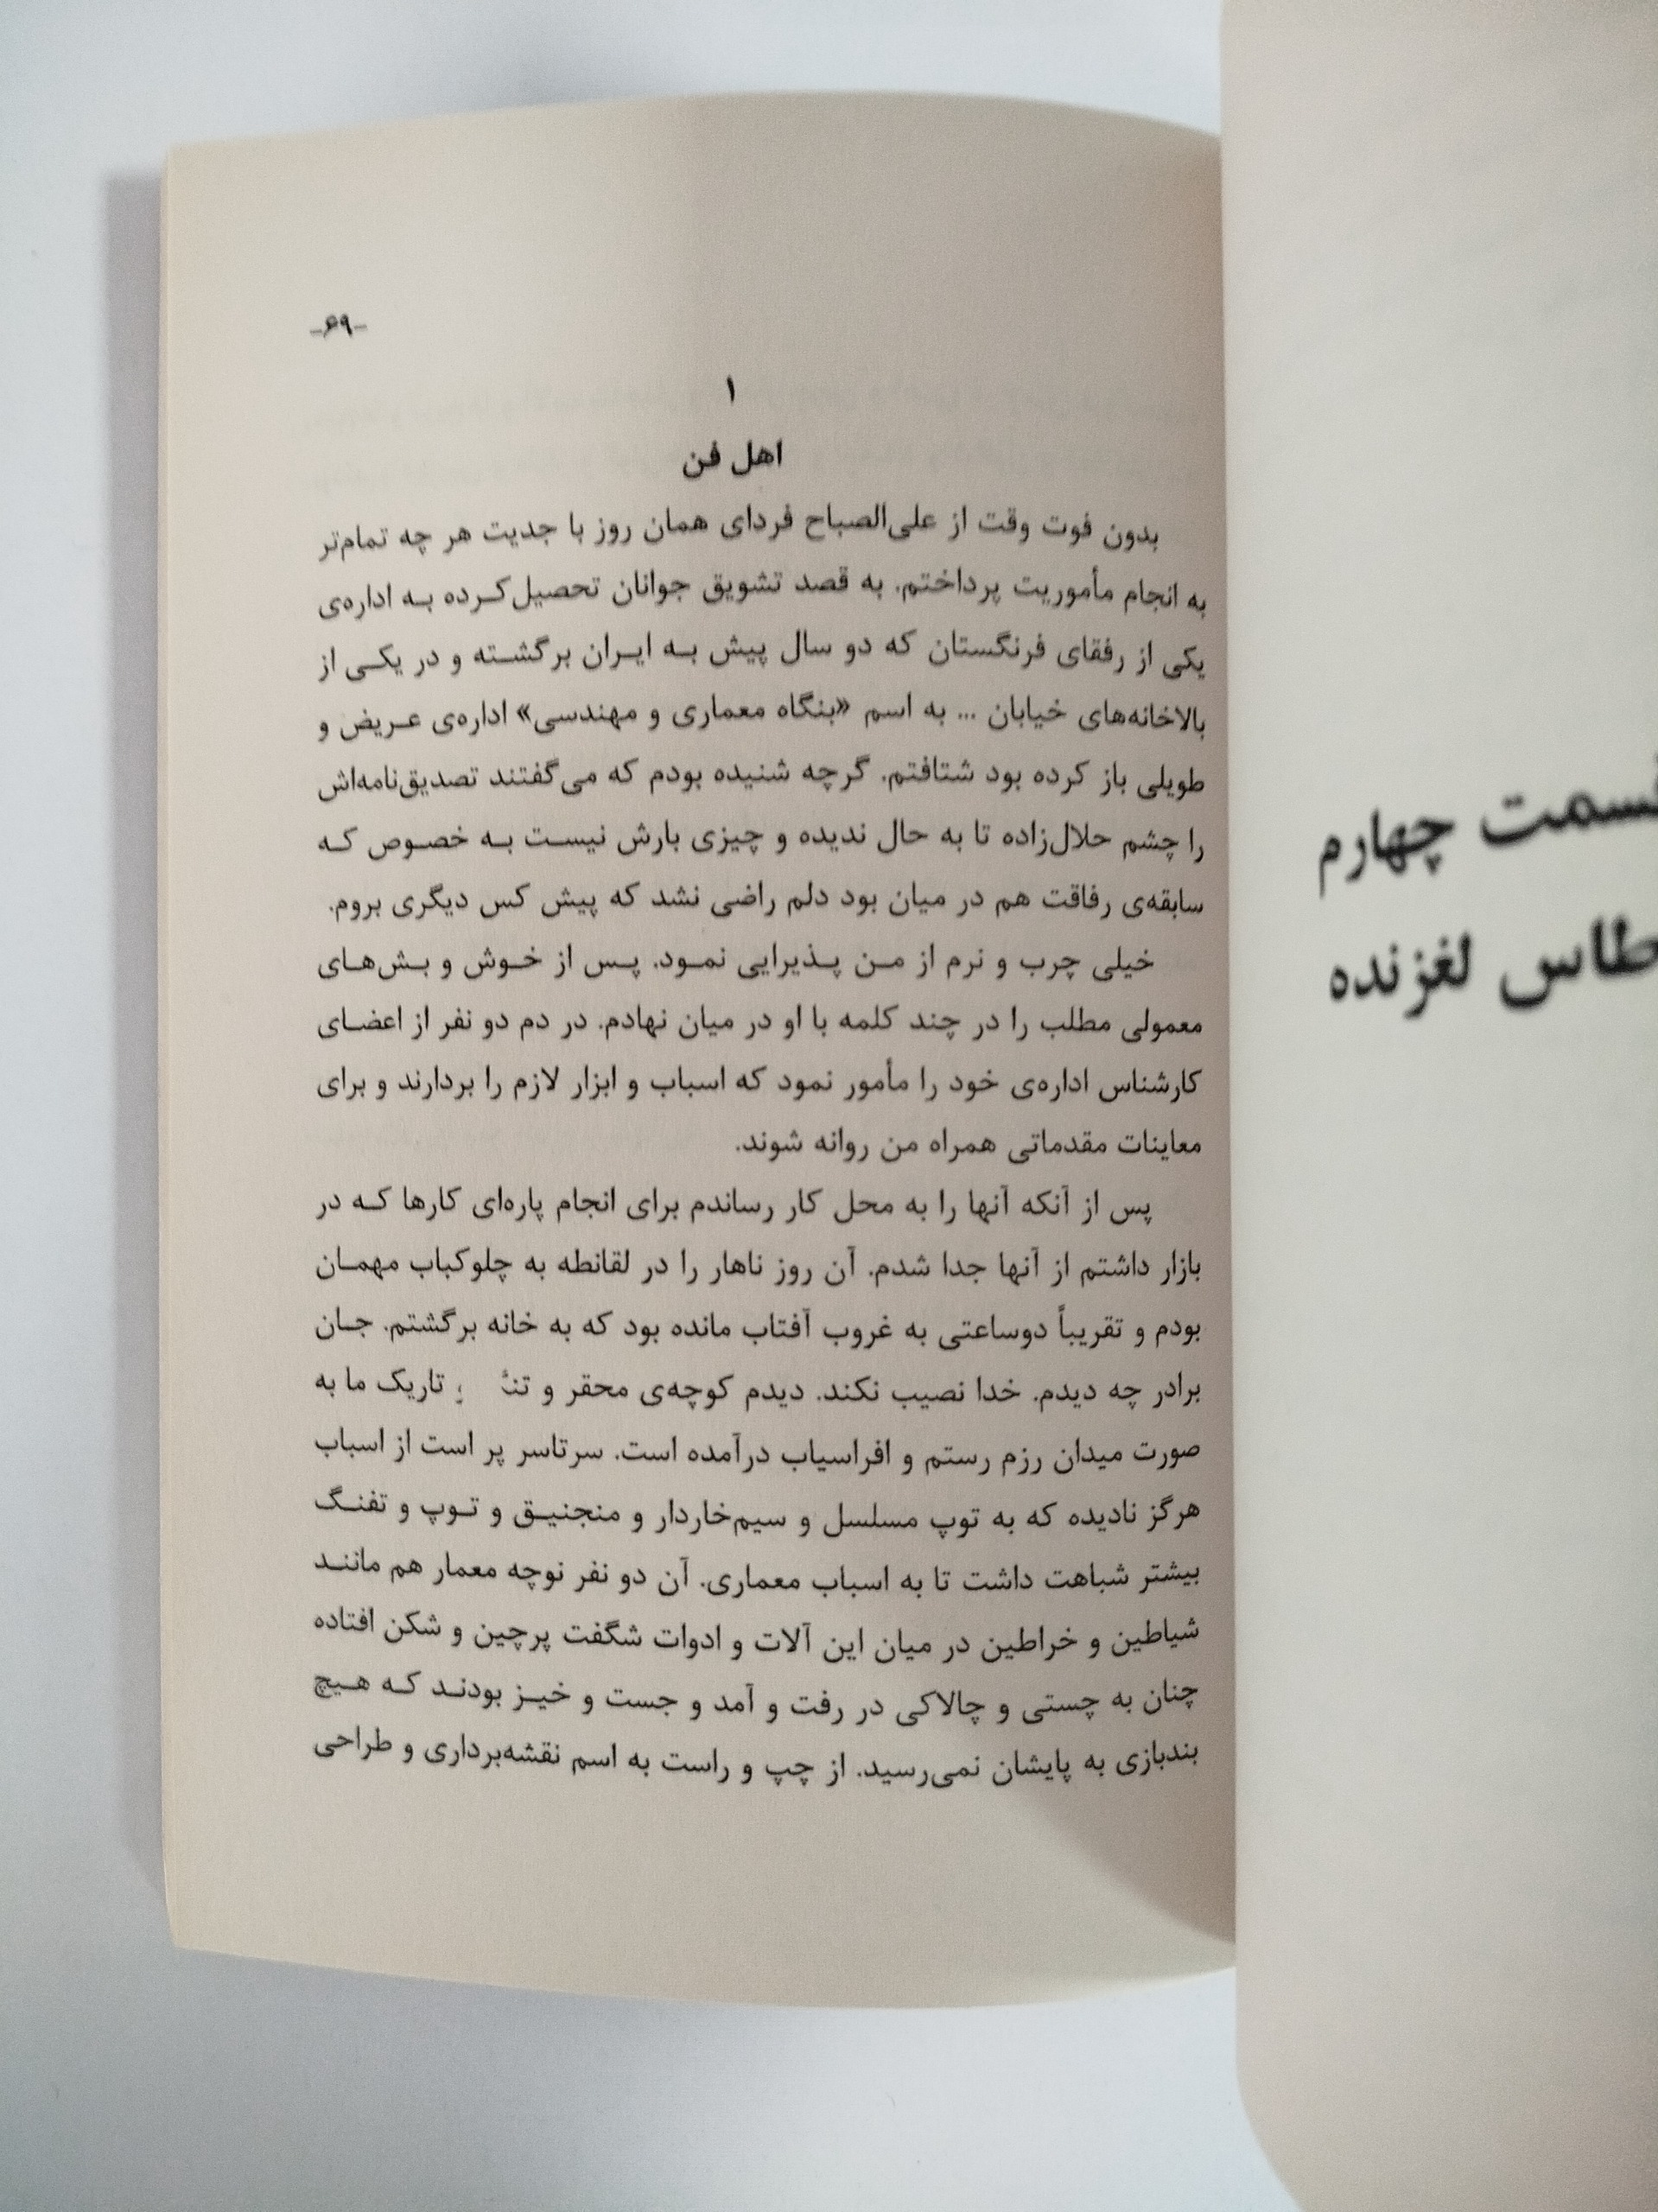 قسمت چهارم
طاس لغزنده
-۶۹-
۱
اهل فن
بدون فوت وقت از علی‌الصباح فردای همان روز با جدیت هر چه تمام‌تر
به انجام مأموریت پرداختم. به قصد تشویق جوانان تحصیل‌کرده به اداره‌ی
یکی از رفقای فرنگستان که دو سال پیش به ایران برگشته و در یکی از
بالاخانه‌های خیابان ... به اسم «بنگاه معماری و مهندسی» اداره‌ی عریض و
طویلی باز کرده بود شتافتم. گرچه شنیده بودم که می‌گفتند تصدیق‌نامه‌اش
را چشم حلال‌زاده تا به حال ندیده و چیزی بارش نیست به خصوص که
سابقه‌ی رفاقت هم در میان بود دلم راضی نشد که پیش کس دیگری بروم.
خیلی چرب و نرم از من پذیرایی نمود. پس از خوش و بش‌های
معمولی مطلب را در چند کلمه با او در میان نهادم. در دم دو نفر از اعضای
کارشناس اداره‌ی خود را مأمور نمود که اسباب و ابزار لازم را بردارند و برای
معاینات مقدماتی همراه من روانه شوند.
پس از آنکه آنها را به محل کار رساندم برای انجام پاره‌ای کارها که در
بازار داشتم از آنها جدا شدم. آن روز ناهار را در لقانطه به چلوکباب مهمان
بودم و تقریباً دوساعتی به غروب آفتاب مانده بود که به خانه برگشتم. جان
برادر چه دیدم. خدا نصیب نکند. دیدم کوچه‌ی محقر و تاریک ما به
صورت میدان رزم رستم و افراسیاب درآمده است. سرتاسر پر است از اسباب
هرگز نادیده که به توپ مسلسل و سیم‌خاردار و منجنیق و توپ و تفنگ
بیشتر شباهت داشت تا به اسباب معماری. آن دو نفر نوچه معمار هم مانند
شیاطین و خراطین در میان این آلات و ادوات شگفت پرچین و شکن افتاده
چنان به چستی و چالاکی در رفت و آمد و جست و خیز بودند که هیچ
بندبازی به پایشان نمی‌رسید. از چپ و راست به اسم نقشه‌برداری و طراحی